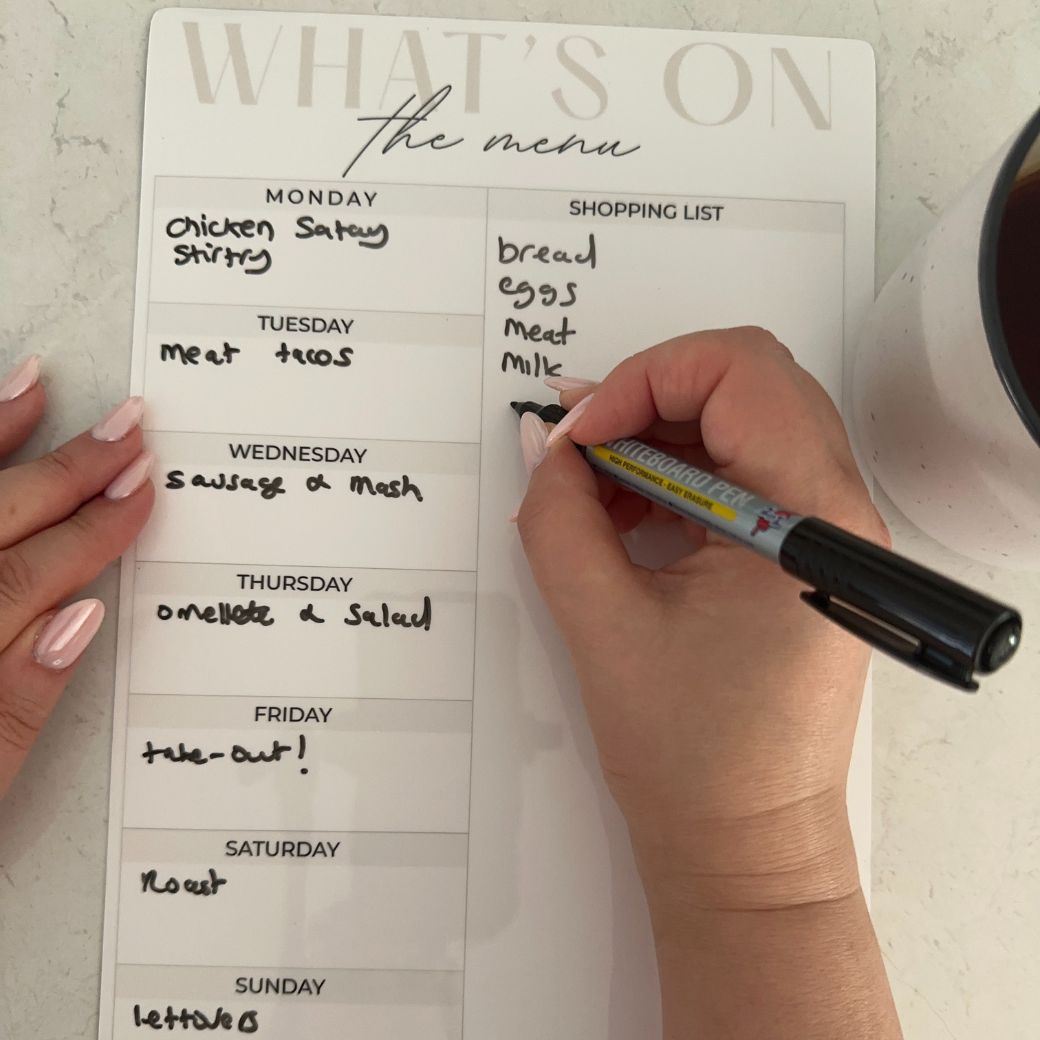 WHAT'S ON
the menu
MONDAY
Chicken Satay
Stirfry
TUESDAY
Meat tacos
WEDNESDAY
Sausage & Mash
THURSDAY
Omellete & Salad
FRIDAY
take-out!
SATURDAY
Roast
SUNDAY
leftovers
SHOPPING LIST
bread
eggs
Meat
Milk
WHITEBOARD PEN
HIGH PERFORMANCE · EASY ERASURE